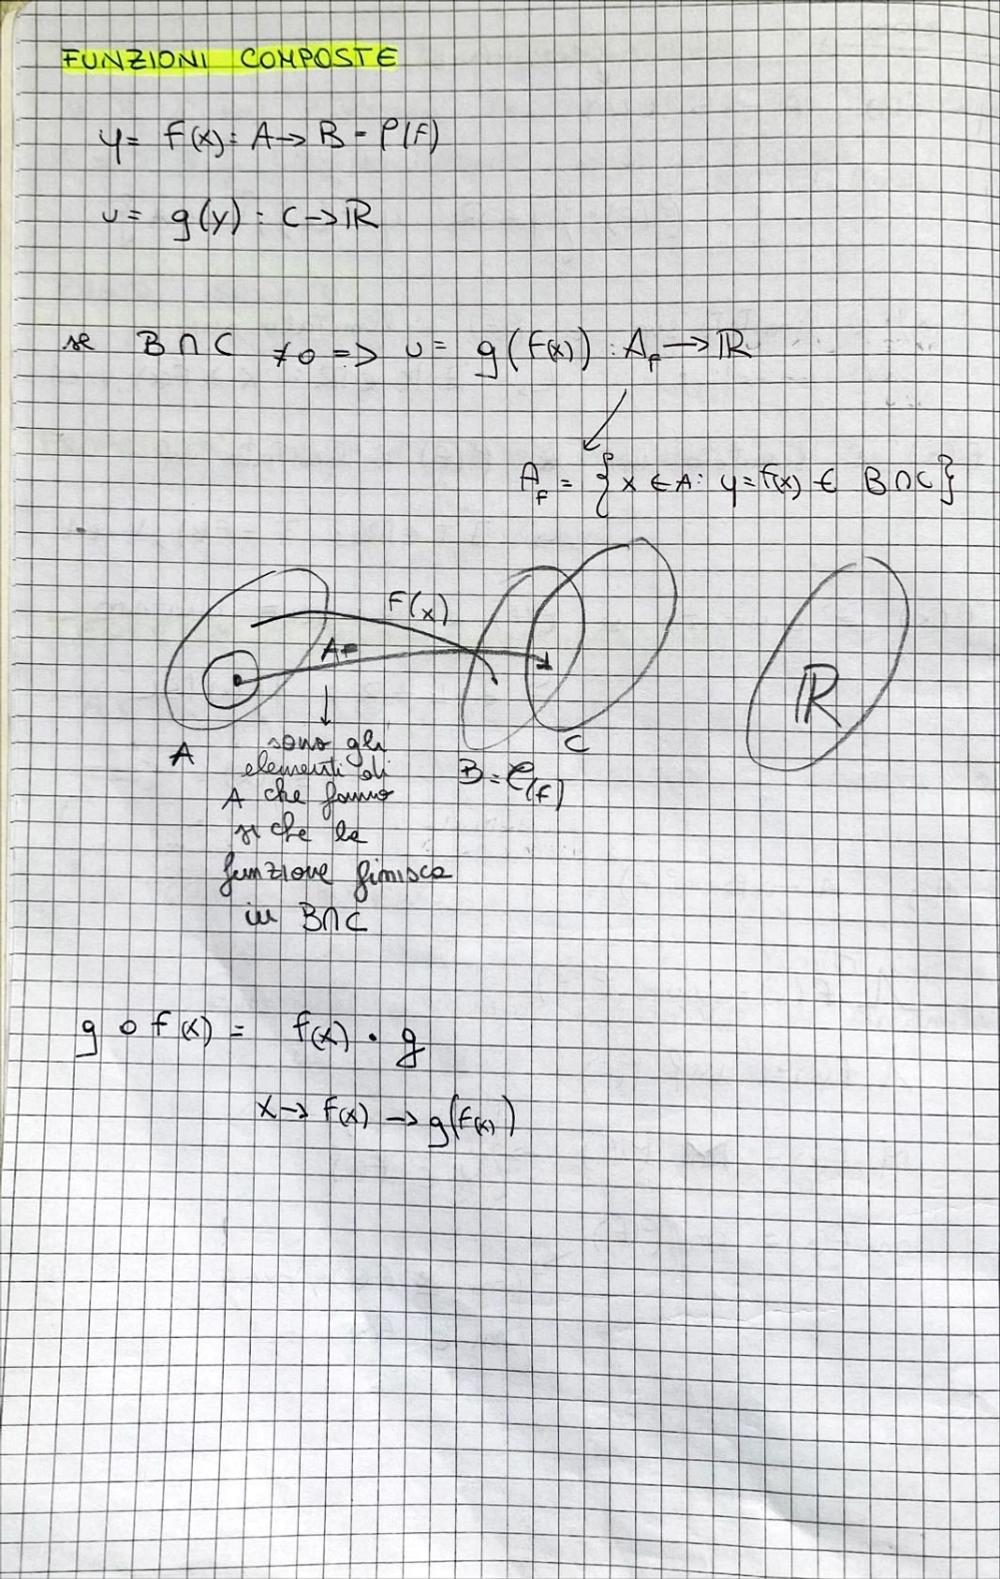 FUNZIONI COMPOSTE
y= f(x): A→ B = P(F)
u= g(y) : C→ℝ
se B∩C ≠0 => u= g(f(x)) : A_F → ℝ
A_F = {x ∈ A: y=f(x) ∈ B∩C}
F(x)
A_F
ℝ
A
C
B=P(F)
sono gli
elementi di
A che fanno
si che la
funzione finisca
in B∩C
g o f(x) = f(x) • g
x→ f(x) → g(f(x))